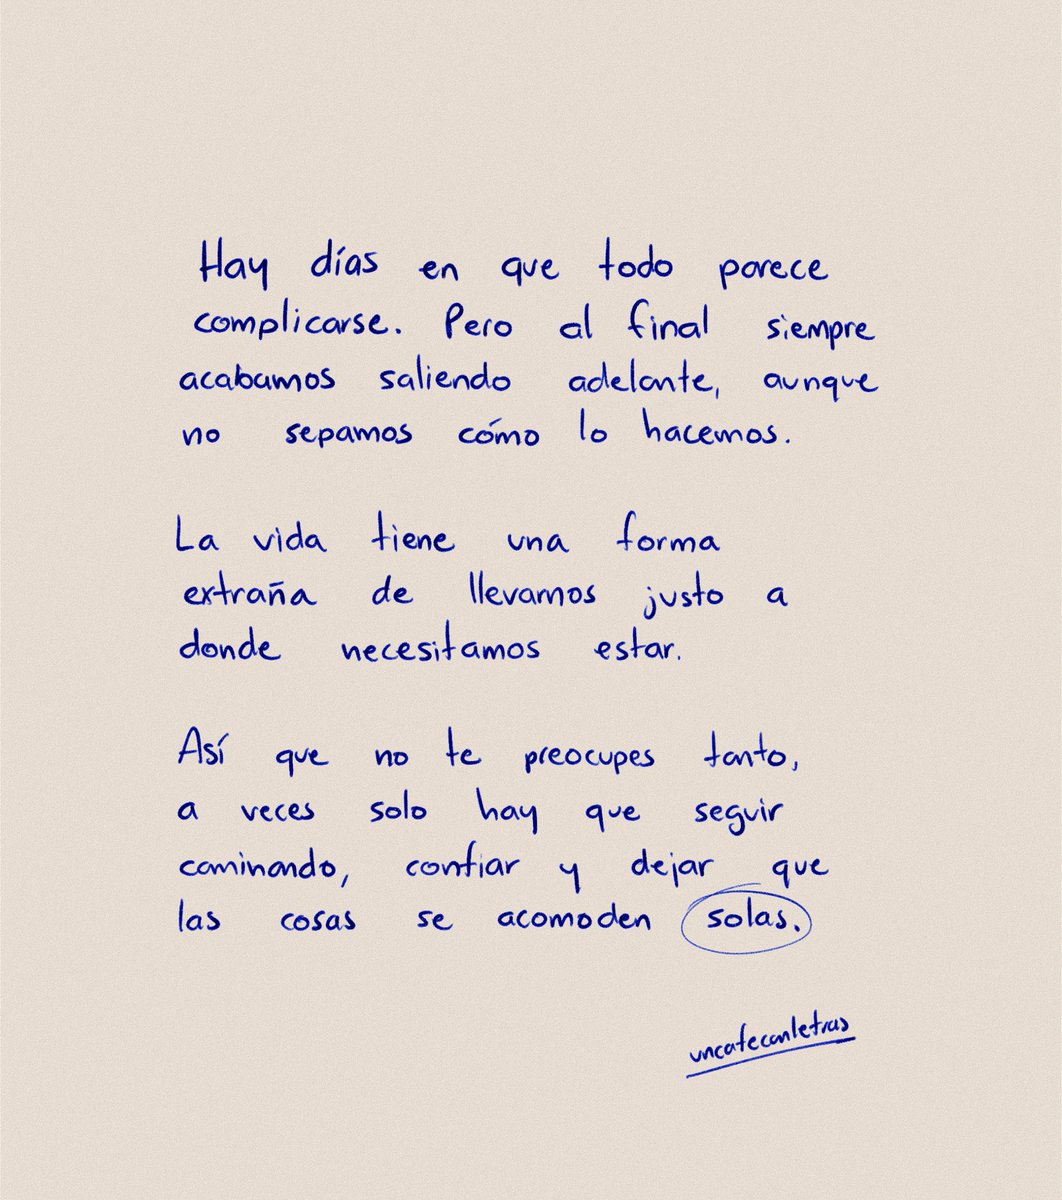 Hay días en que todo parece
complicarse. Pero al final siempre
acabamos saliendo adelante, aunque
no sepamos cómo lo hacemos.
La vida tiene una forma
extraña de llevarnos justo a
donde necesitamos estar.
Así que no te preocupes tanto,
a veces solo hay que seguir
caminando, confiar y dejar que
las cosas se acomoden solas.
uncafeconletras